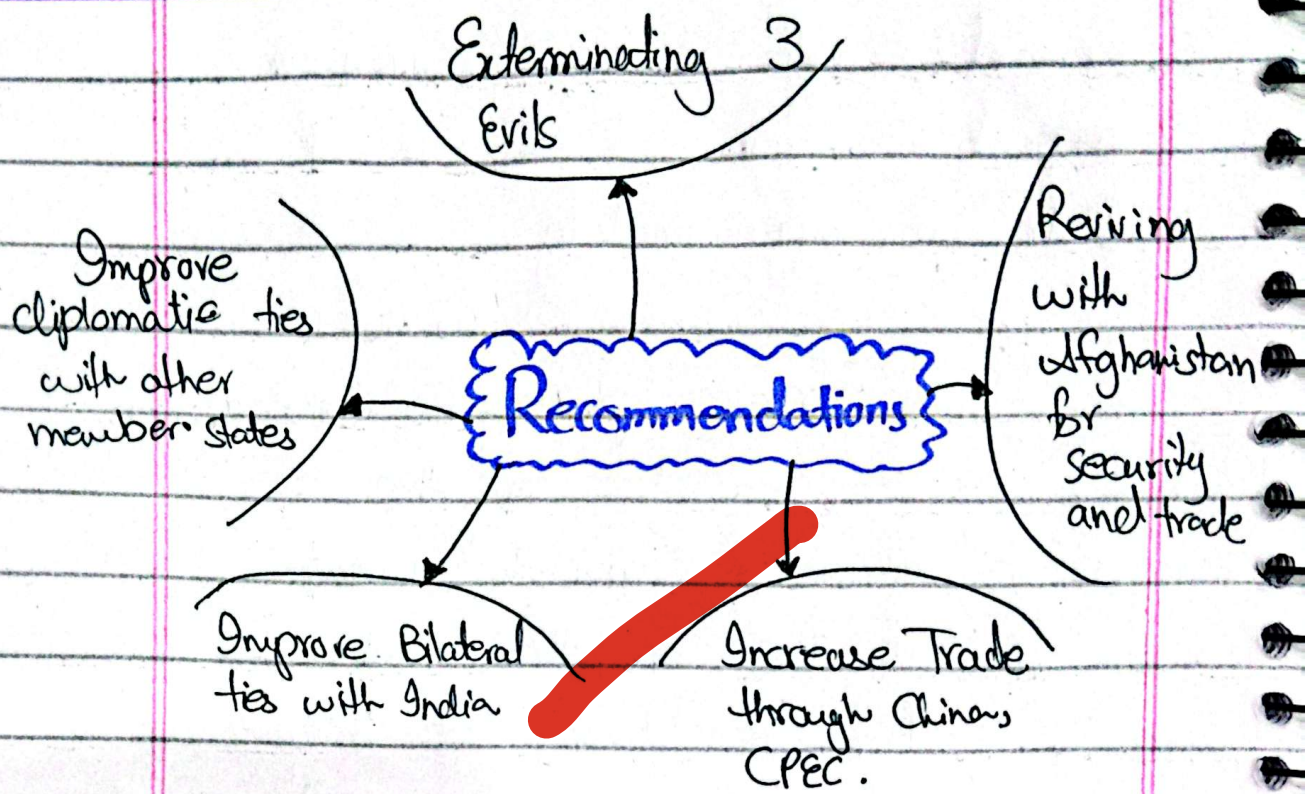 Exterminating 3
Evils
Improve
diplomatic ties
with other
member states
Recommendations
Reviving
with
Afghanistan
for
security
and trade
Improve Bilateral
ties with India
Increase Trade
through China,
CPEC.